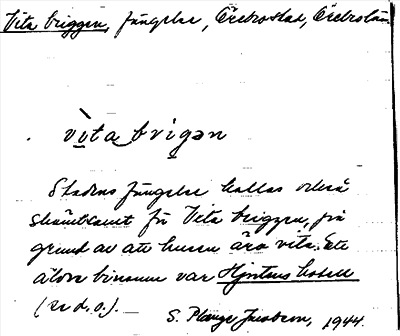 Vita briggen, fängelse, Örebro stad, Örebro län
vita brigən
Stadens fängelse kallas också
skämtsamt för Vita briggen, på
grund av att husen äro vita. Ett
äldre binamn var Hjortens hotell
(se d. o.). —
S. 1944.